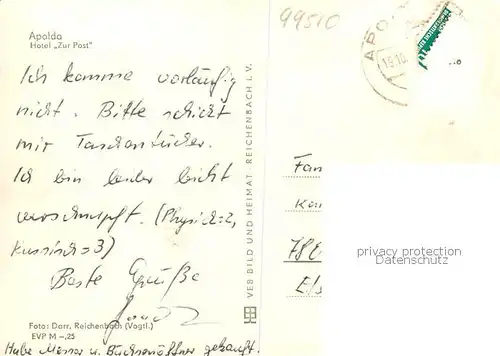 Apolda
Hotel „Zur Post"
99510
Ich komme vorläufig
nicht. Bitte schickt
mir Taschentücher.
Ich bin leider leicht
verschnupft. (Physik=2,
Russisch=3)
Beste Grüße
VEB BILD UND HEIMAT REICHENBACH I. V.
Foto: Darr, Reichenbach (Vogtl.)
EVP M –,25
Habe Messer u. Büchsenöffner gekauft.
APO
19.10
Fam
privacy protection
Datenschutz